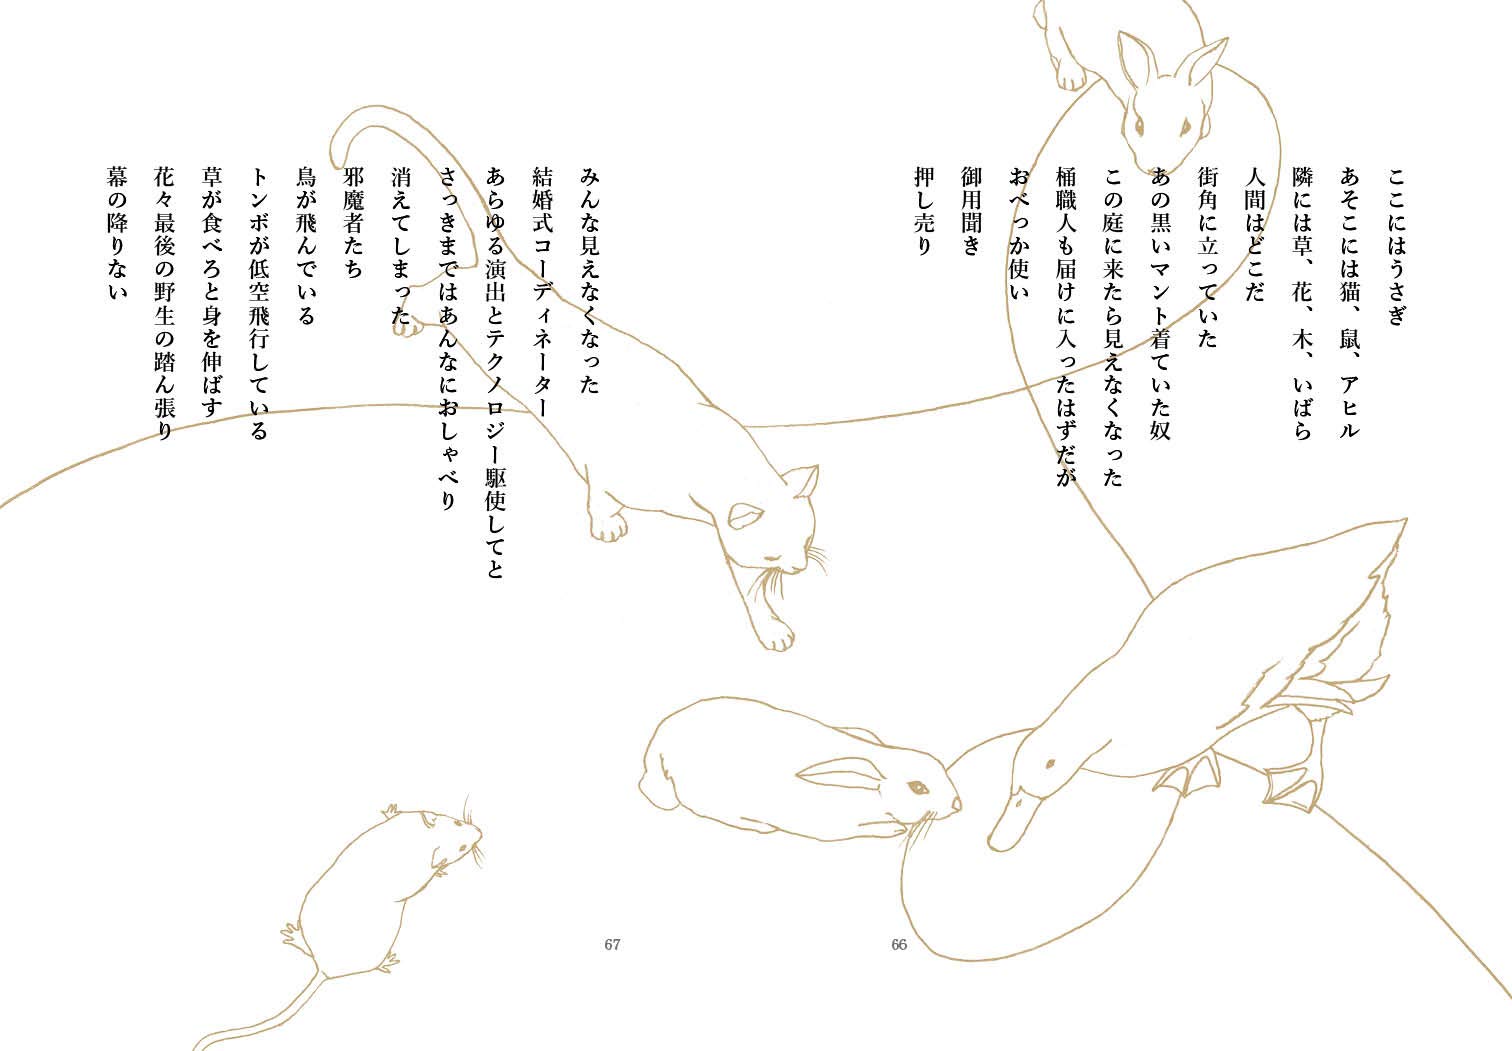 ここにはうさぎ
あそこには猫、鼠、アヒル
隣には草、花、木、いばら
人間はどこだ
街角に立っていた
あの黒いマント着ていた奴
この庭に来たら見えなくなった
桶職人も届けに入ったはずだが
おべっか使い
御用聞き
押し売り
66
みんな見えなくなった
結婚式コーディネーター
あらゆる演出とテクノロジー駆使してと
さっきまではあんなにおしゃべり
消えてしまった
邪魔者たち
鳥が飛んでいる
トンボが低空飛行している
草が食べろと身を伸ばす
花々最後の野生の踏ん張り
幕の降りない
67